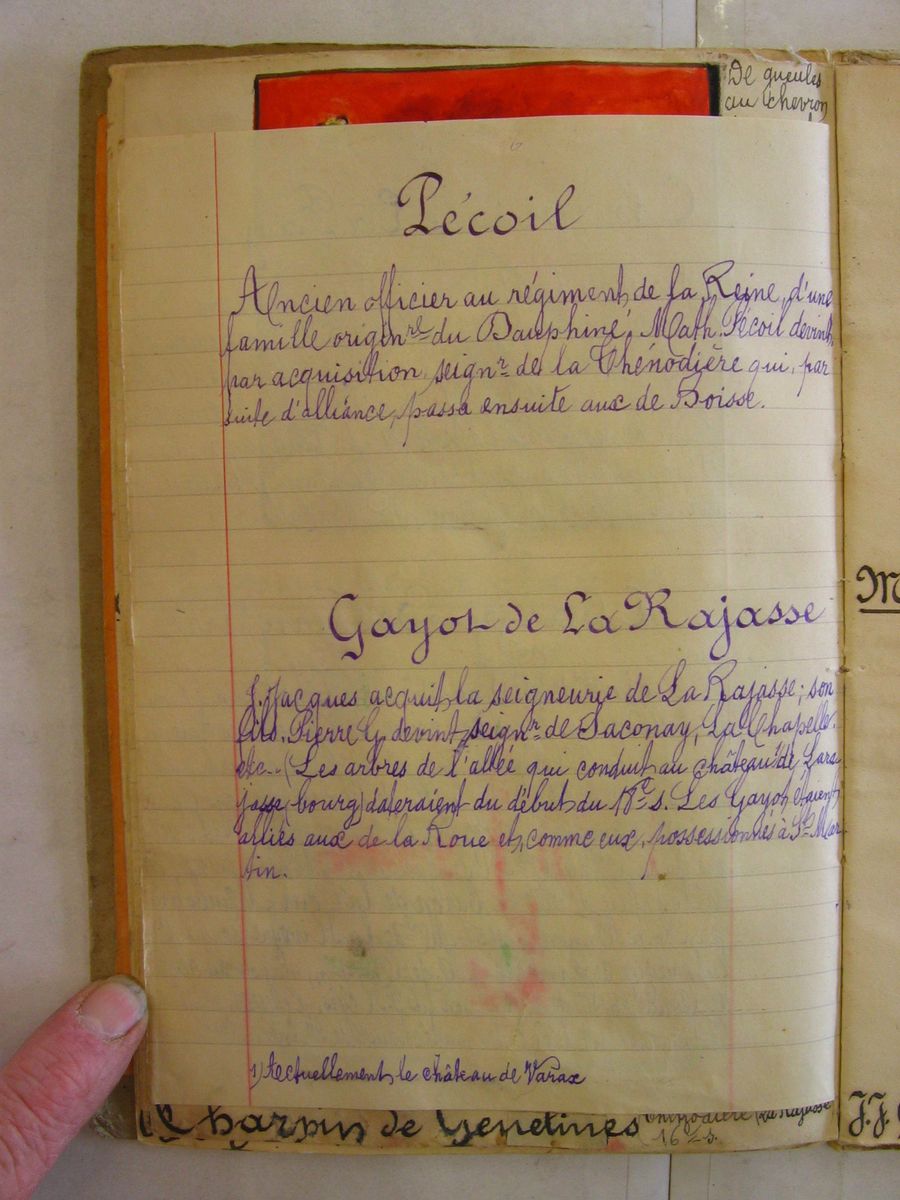 De gueules
au chevron
Pécoil
Ancien officier au régiment de la Reine, d'une
famille orign.re du Dauphiné, Math. Pécoil devint,
par acquisition, seign.r de la Thénodière qui, par
suite d'alliance, passa ensuite aux de Boisse.
Gayot de La Rajasse
J. Jacques acquit la seigneurie de La Rajasse; son
fils Pierre G. devint seign.r de Saconay, La Chapelle
etc.. (Les arbres de l'allée qui conduit au château de Lara
jasse (bourg) dateraient du début du 18e s. Les Gayot étaient
alliés aux de la Roue et, comme eux, possessionnés à St Mar
tin.
1) Actuellement le château de Varax
Charpin de Genetines
Thénodière (La Rajasse
16e s.
M
J.J.